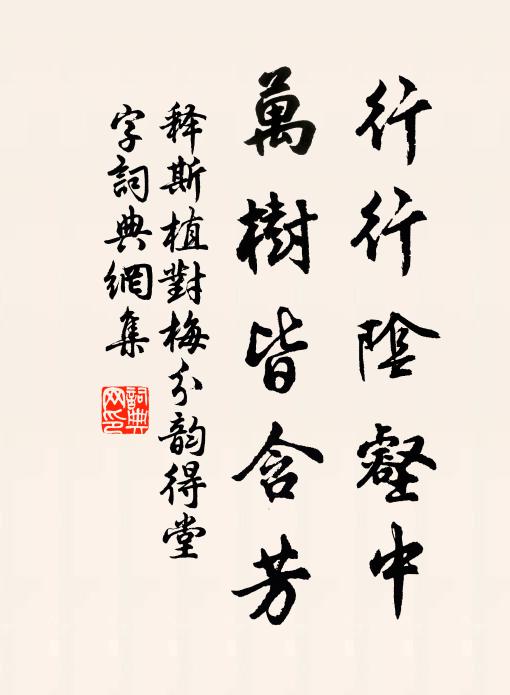 行行陰壑中
萬樹皆含芳
释斯植對梅分韵得堂
字詞典網集
詞典網印